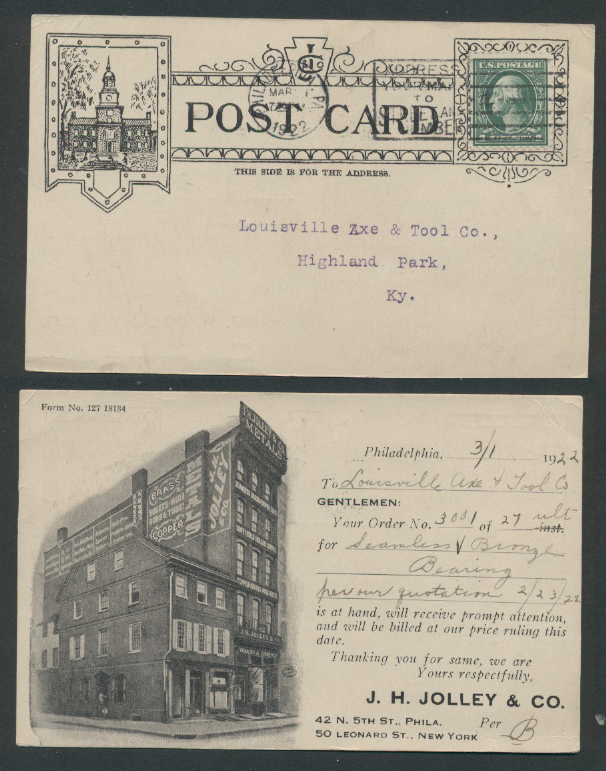 MAR
1922
POST CARD
U.S. POSTAGE
THIS SIDE IS FOR THE ADDRESS.
Louisville Zxe & Tool Co.,
Highland Park,
Ky.
Form No. 127 18184
METALS
BRASS
COPPER
Philadelphia, 3/1 1922
To Louisville Axe & Tool Co
GENTLEMEN:
Your Order No. 3001 of 27 ult inst.
for Seamless Bronze
Bearing
per our quotation 2/23/22
is at hand, will receive prompt attention,
and will be billed at our price ruling this
date.
Thanking you for same, we are
Yours respectfully,
J. H. JOLLEY & CO.
42 N. 5TH ST., PHILA.
50 LEONARD ST., NEW YORK
Per B